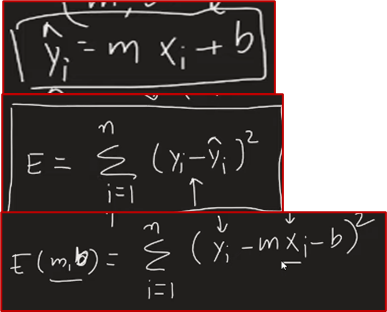 ŷᵢ = m xᵢ + b
E = Σ_{i=1}^{n} (yᵢ − ŷᵢ)²
E(m,b) = Σ_{i=1}^{n} (yᵢ − m xᵢ − b)²